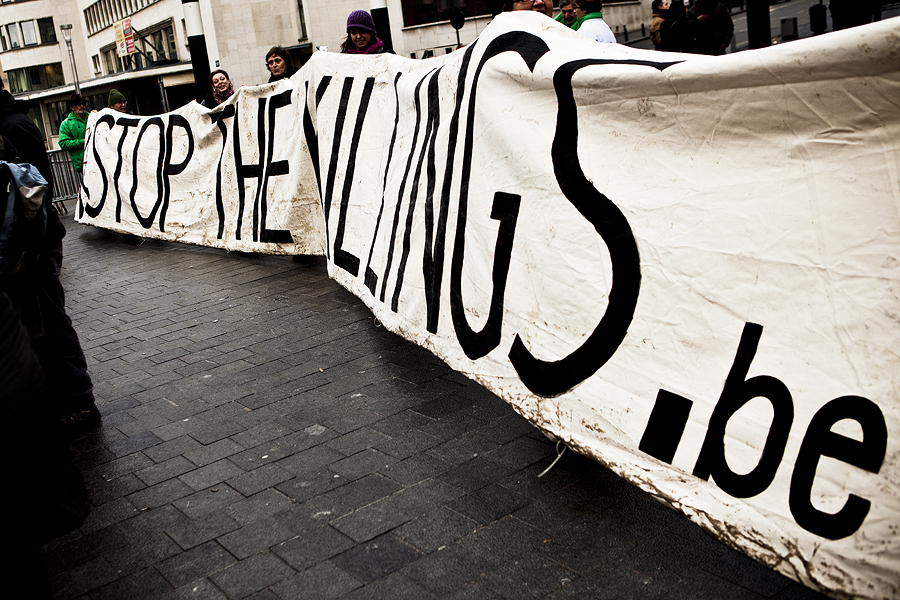 STOP THE KILLINGS.be